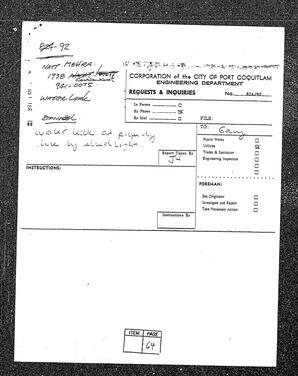 824-92
NATT MEHRA.
1938
941-0075
WATER LEAK
CORPORATION of the CITY OF PORT COQUITLAM
ENGINEERING DEPARTMENT
REQUESTS & INQUIRIES
No. 824/92
In Person
By Phone
By Mail
FILE:
water leak at property
line by
Report Taken By
TO: Gary
Public Works
Utilities
Trades & Sanitation
Engineering Inspection
INSTRUCTIONS:
FOREMAN:
See Originator
Investigate and Report
Take Necessary Action
Instructions By
ITEM PAGE
64